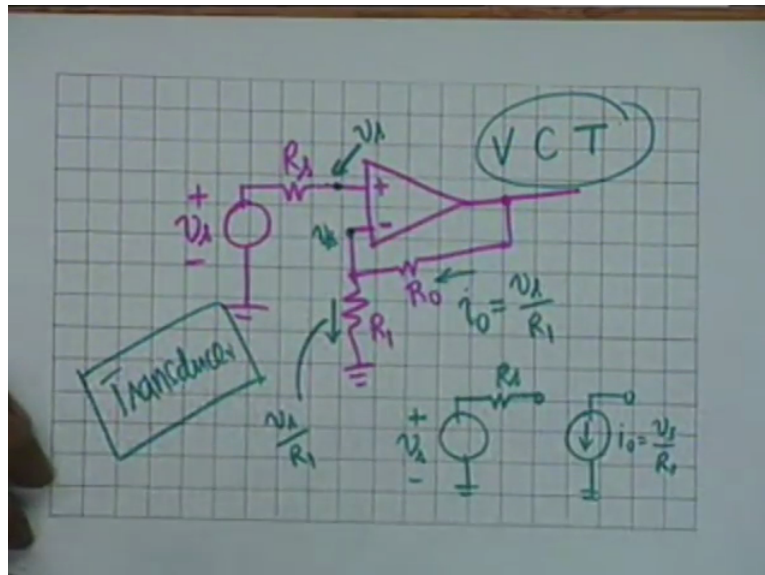 V C T
vs
Rs
+
vs
-
+
-
vs
Ro
io = vs/R1
R1
Transducer
vs/R1
Rs
+
vs
-
io = vs/R1